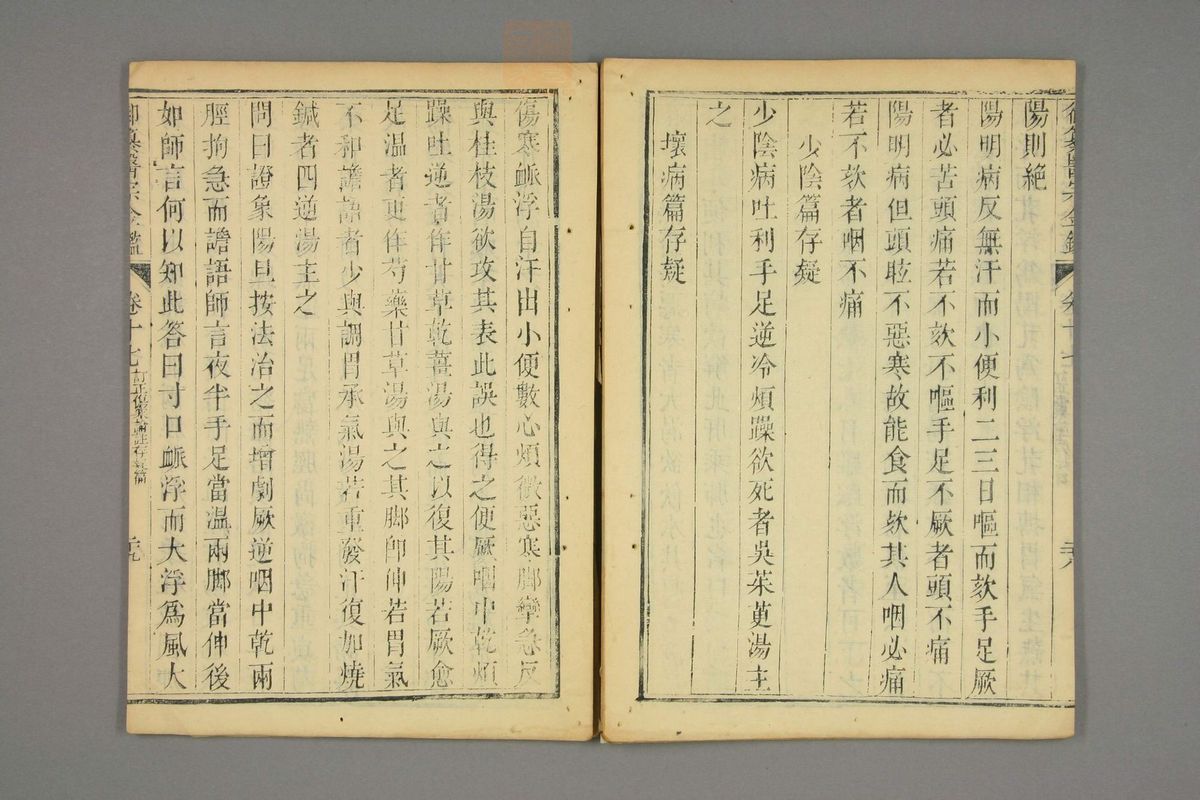 御纂醫宗金鑑 卷十七 三八
陽則絶
陽明病反無汗而小便利二三日嘔而欬手足厥
者必苦頭痛若不欬不嘔手足不厥者頭不痛
陽明病但頭眩不惡寒故能食而欬其人咽必痛
若不欬者咽不痛
少陰篇存疑
少陰病吐利手足逆冷煩躁欲死者吳茱萸湯主
之
壞病篇存疑
傷寒脈浮自汗出小便數心煩微惡寒脚攣急反
與桂枝湯欲攻其表此誤也得之便厥咽中乾煩
躁吐逆者作甘草乾薑湯與之以復其陽若厥愈
足温者更作芍藥甘草湯與之其脚卽伸若胃氣
不和譫語者少與調胃承氣湯若重發汗復加燒
鍼者四逆湯主之
問曰證象陽旦按法治之而增劇厥逆咽中乾兩
脛拘急而譫語師言夜半手足當温兩脚當伸後
如師言何以知此答曰寸口脈浮而大浮爲風大
御纂醫宗金鑑 卷十七 訂正傷寒論註存疑篇 三九